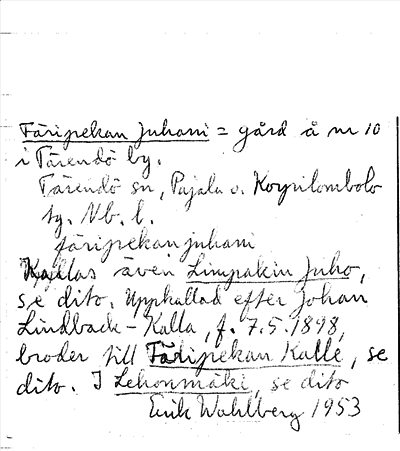 Färipekan Juhani = gård å nr 10
i Tärendö by.
Tärendö sn, Pajala o. Korpilombolo
tg. Nb. l.
färipekanjuhani
Kallas även Limpakin Juho,
se dito. Upphallad efter Johan
Lindback-Kalla, f. 7.5.1898,
broder till Färipekan Kalle, se
dito. I Lehonmäki, se dito
Erik Wahlberg 1953